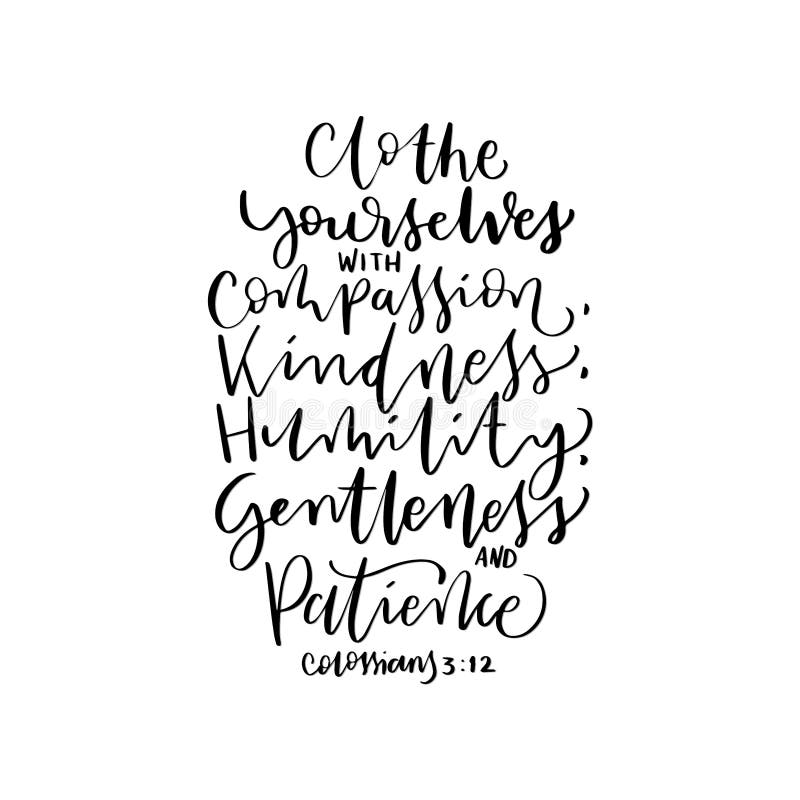 Clothe
yourselves
WITH
Compassion,
Kindness,
Humility,
Gentleness
AND
Patience
Colossians 3:12
dreamstime